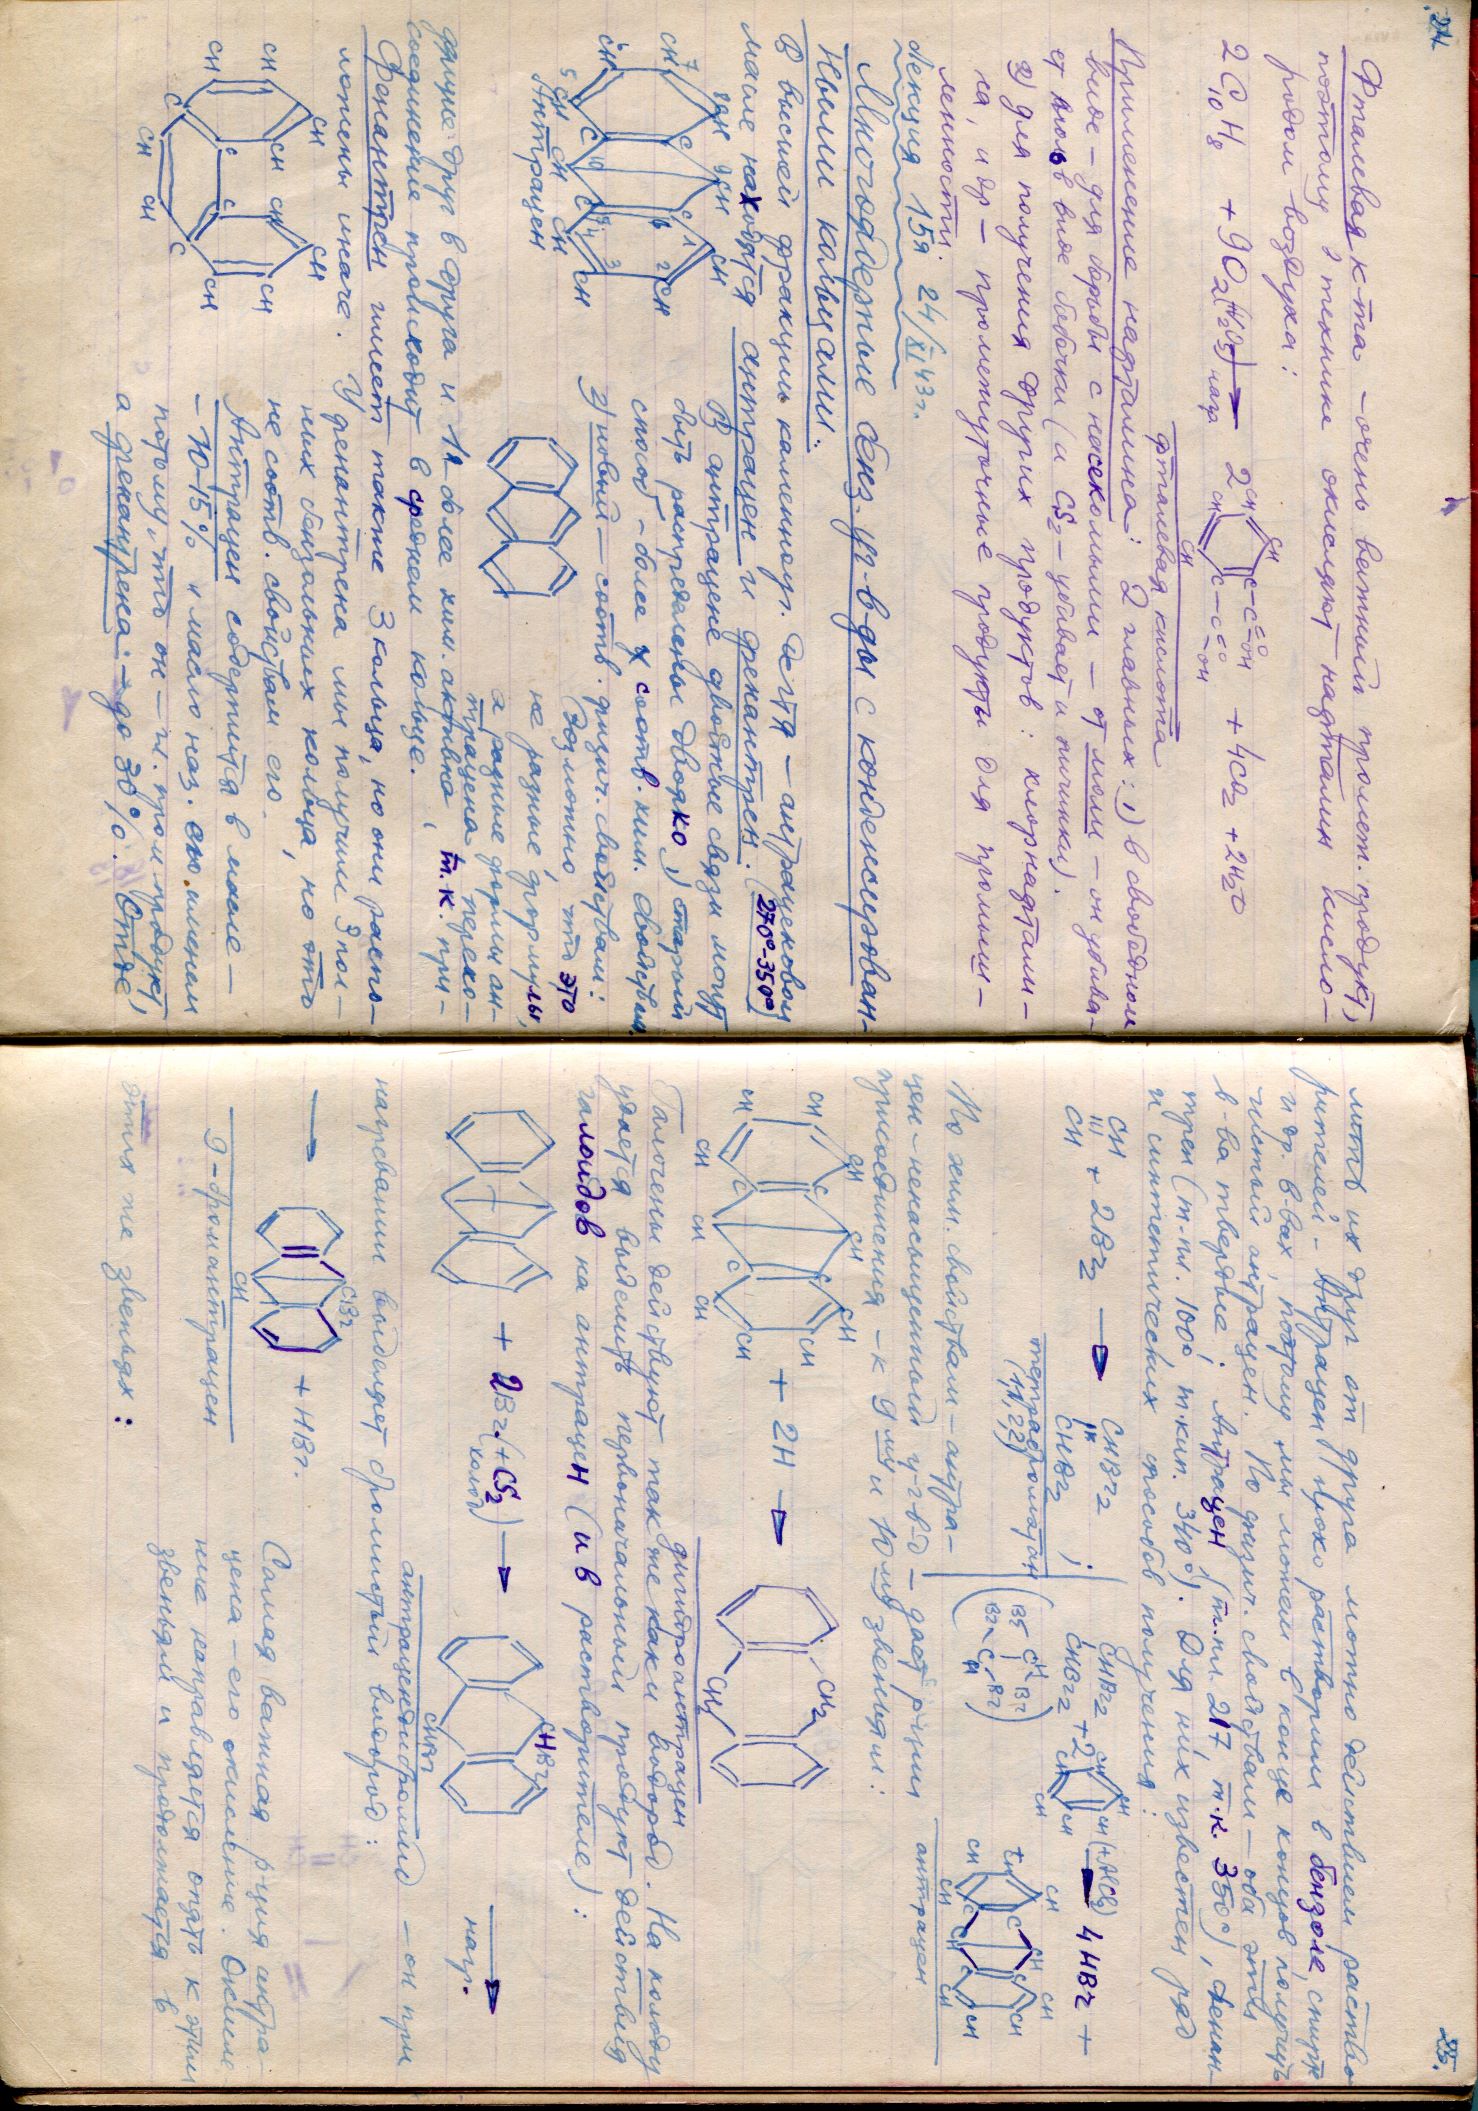 24.
Фталевая к-та – очень важный промеж. продукт,
поэтому в технике окисляют нафталин кисло-
родом воздуха:
2C10H8 + 9O2 (V2O5) → нагр 2 CH CH C–C=O–OH CH CH C–C=O–OH + 4CO2 + 2H2O
фталевая кислота
Применение нафталина: 2 главных: 1) в свободном
виде – для борьбы с насекомыми – от моли – он убива-
ет моль в виде бабочки (а CS2 – убивает и личинки).
2) для получения других продуктов: хлорнафтали-
на, и др – промежуточные продукты для промыш-
ленности.
Лекция 15я 24/XI 43г.
Многоядерные бенз. уг-в-ды с конденсирован-
ными кольцами.
В высшей фракции каменноуг. дёгтя – антраценовом
масле находятся антрацен и фенантрен. (270°-350°)
В антрацене двойные связи могут
быть распределены двояко 1) старый
способ – более соотв. хим. свойствам
2) новый – соотв. физич. свойствам:
Возможно что это
не разные формулы,
а разные формы ан-
трацена перехо-
Антрацен
дящие друг в друга и 1я более хим. активна, т.к. при-
соединение происходит в среднем кольце.
Фенантрен имеет также 3 кольца, но они распо-
ложены иначе. У фенантрена мы получим 3 пол-
ных бензольных кольца, но это
не соотв. свойствам его.
Антрацен содержится в масле –
– 10-15% и масло наз. его именем
потому, что он – ж. пром продукт,
а фенантрена: → до 30%. Отде-
25.
лить их друг от друга можно действием раство-
рителей – Антрацен плохо растворим в бензоле, спирте
и др. в-вах, поэтому мы можем в конце концов получить
чистый антрацен. По физич. свойствам – оба эти
в-ва твердые; Антрацен (т.пл. 217, т.к. 350°), фенан-
трен (т.пл. 100° т.кип. 340°). Для них известен ряд
и синтетических способов получения:
CH≡CH + 2Br2 → CHBr2 CHBr2 ; CHBr2 CHBr2 + 2 CH CH CH CH CH CH (+AlCl3) → 4HBr +
тетрабромэтан
(1,1,2,2)
антрацен
По хим. свойствам – антра-
цен – ненасыщенный у-в-д – дает р-ции
присоединения – к 9му и 10му звеньям:
+ 2H → CH2 CH2
дигидроантрацен
Галогены действуют так же как и водород. На холоду
удается выделить первоначальный продукт действия
галоидов на антрацен (и в растворителе):
+ 2Br (+CS2) холод → CHBr CHBr нагр. →
антрацендибромид – он при
нагревании выделяет бромистый водород:
→ CBr CH + HBr.
9-бромантрацен
Самая важная р-ция антра-
цена – его окисление. Окисле-
ние направляется опять к этим
звеньям и продолжается в
этих же звеньях: